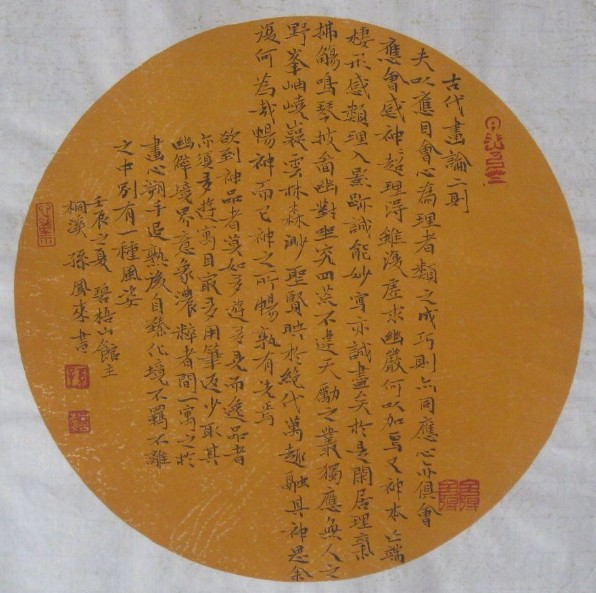 古代畫論二則
夫以應目會心為理者類之成巧則亦同應心亦俱會
應會感神超理得雖復虛求幽巖何以加焉又神本亡端
棲形感類理入影跡誠能妙寫亦誠盡矣於是閒居理氣
拂觴鳴琴披圖幽對坐究四荒不違天勵之叢獨應無人之
野峯岫嶤嶷雲林森渺聖賢暎於絕代萬趣融其神思余
復何為哉暢神而已神之所暢孰有先焉
欲到神品者莫如多遊多見而逸品者
亦須多遊寓目最多用筆反少取其
幽僻境界意象濃粹者間一寓之於
畫心溯手追熟後自臻化境不羈不離
之中別有一種風姿
壬辰之夏 碧梧山館主
桐溪 孫鳳來書